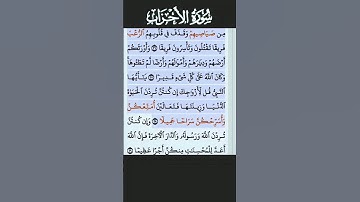 سورة الأحزاب
مِن صَيَاصِيهِمْ وَقَذَفَ فِي قُلُوبِهِمُ الرُّعْبَ
فَرِيقًا تَقْتُلُونَ وَتَأْسِرُونَ فَرِيقًا ٢٦ وَأَوْرَثَكُمْ
أَرْضَهُمْ وَدِيَارَهُمْ وَأَمْوَالَهُمْ وَأَرْضًا لَّمْ تَطَئُوهَا
وَكَانَ اللَّهُ عَلَىٰ كُلِّ شَيْءٍ قَدِيرًا ٢٧ يَا أَيُّهَا
النَّبِيُّ قُل لِّأَزْوَاجِكَ إِن كُنتُنَّ تُرِدْنَ الْحَيَاةَ
الدُّنْيَا وَزِينَتَهَا فَتَعَالَيْنَ أُمَتِّعْكُنَّ
وَأُسَرِّحْكُنَّ سَرَاحًا جَمِيلًا ٢٨ وَإِن كُنتُنَّ
تُرِدْنَ اللَّهَ وَرَسُولَهُ وَالدَّارَ الْآخِرَةَ فَإِنَّ اللَّهَ
أَعَدَّ لِلْمُحْسِنَاتِ مِنكُنَّ أَجْرًا عَظِيمًا ٢٩